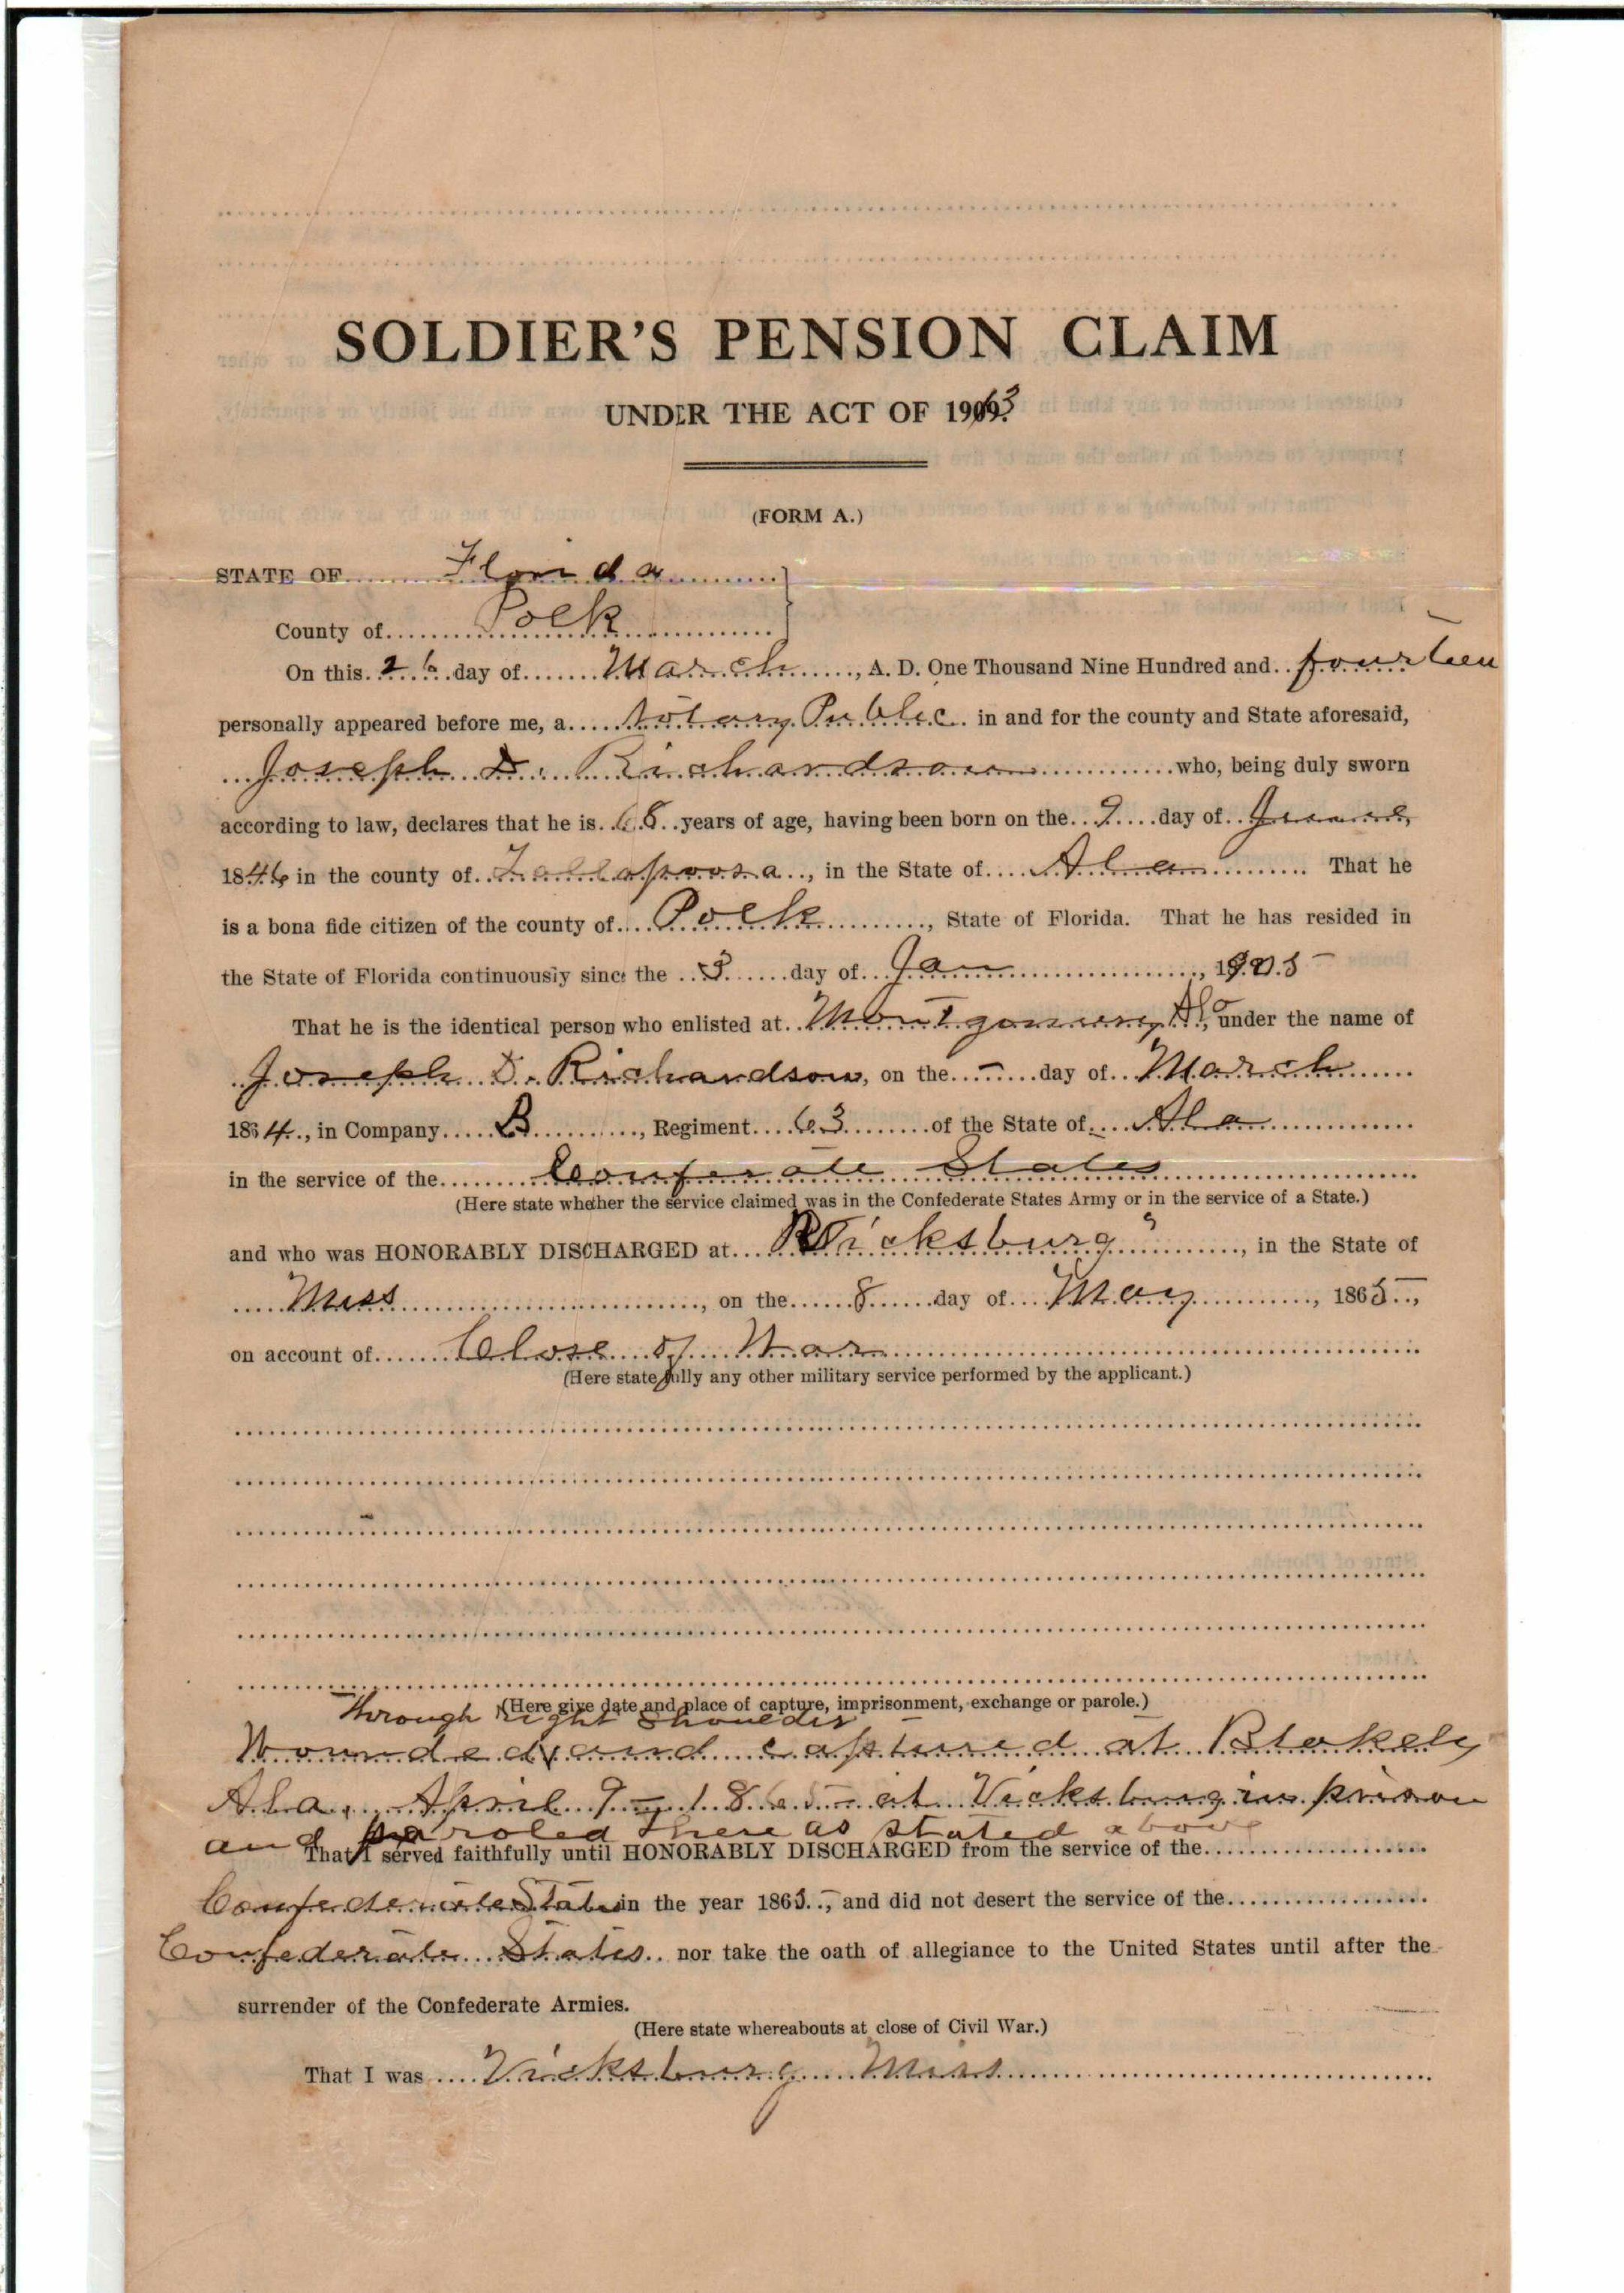 SOLDIER'S PENSION CLAIM
UNDER THE ACT OF 1909. 13
(FORM A.)
STATE OF Florida
County of Polk
On this 26 day of March, A. D. One Thousand Nine Hundred and fourteen
personally appeared before me, a Notary Public in and for the county and State aforesaid,
Joseph D. Richardson who, being duly sworn
according to law, declares that he is 68 years of age, having been born on the 9 day of June,
1846 in the county of Tallapoosa, in the State of Ala That he
is a bona fide citizen of the county of Polk, State of Florida. That he has resided in
the State of Florida continuously since the 3 day of Jan, 1905
That he is the identical person who enlisted at Montgomery Ala, under the name of
Joseph D. Richardson, on the — day of March
1864, in Company B, Regiment 63 of the State of Ala
in the service of the Conferate States
(Here state whether the service claimed was in the Confederate States Army or in the service of a State.)
and who was HONORABLY DISCHARGED at Vicksburg, in the State of
Miss, on the 8 day of May, 1865,
on account of Close of War
(Here state fully any other military service performed by the applicant.)
(Here give date and place of capture, imprisonment, exchange or parole.)
Through right Shoulder
Wounded and captured at Blakely
Ala, April 9 - 1865 - at Vicksburg in prison
and paroled there as stated above
That I served faithfully until HONORABLY DISCHARGED from the service of the
Confederate States in the year 1865, and did not desert the service of the
Confederate States nor take the oath of allegiance to the United States until after the
surrender of the Confederate Armies.
(Here state whereabouts at close of Civil War.)
That I was Vicksburg Miss